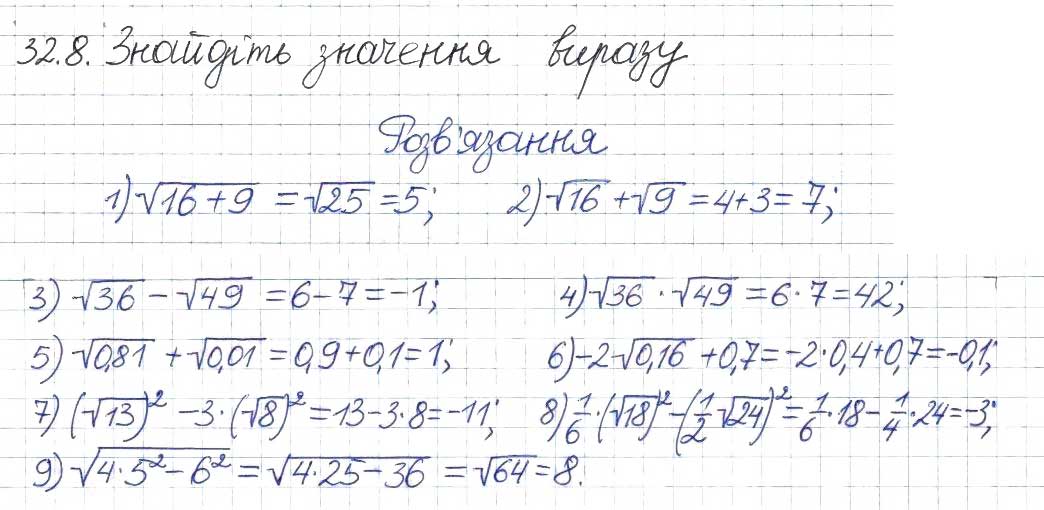 32.8. Знайдіть значення виразу
Розв'язання
1) √(16+9) = √25 = 5; 2) √16 + √9 = 4+3 = 7;
3) √36 − √49 = 6−7 = −1; 4) √36 · √49 = 6·7 = 42;
5) √0,81 + √0,01 = 0,9+0,1 = 1; 6) −2√0,16 + 0,7 = −2·0,4+0,7 = −0,1;
7) (√13)² − 3·(√8)² = 13−3·8 = −11; 8) 1/6·(√18)² − (1/2 √24)² = 1/6·18 − 1/4·24 = −3;
9) √(4·5²−6²) = √(4·25−36) = √64 = 8.